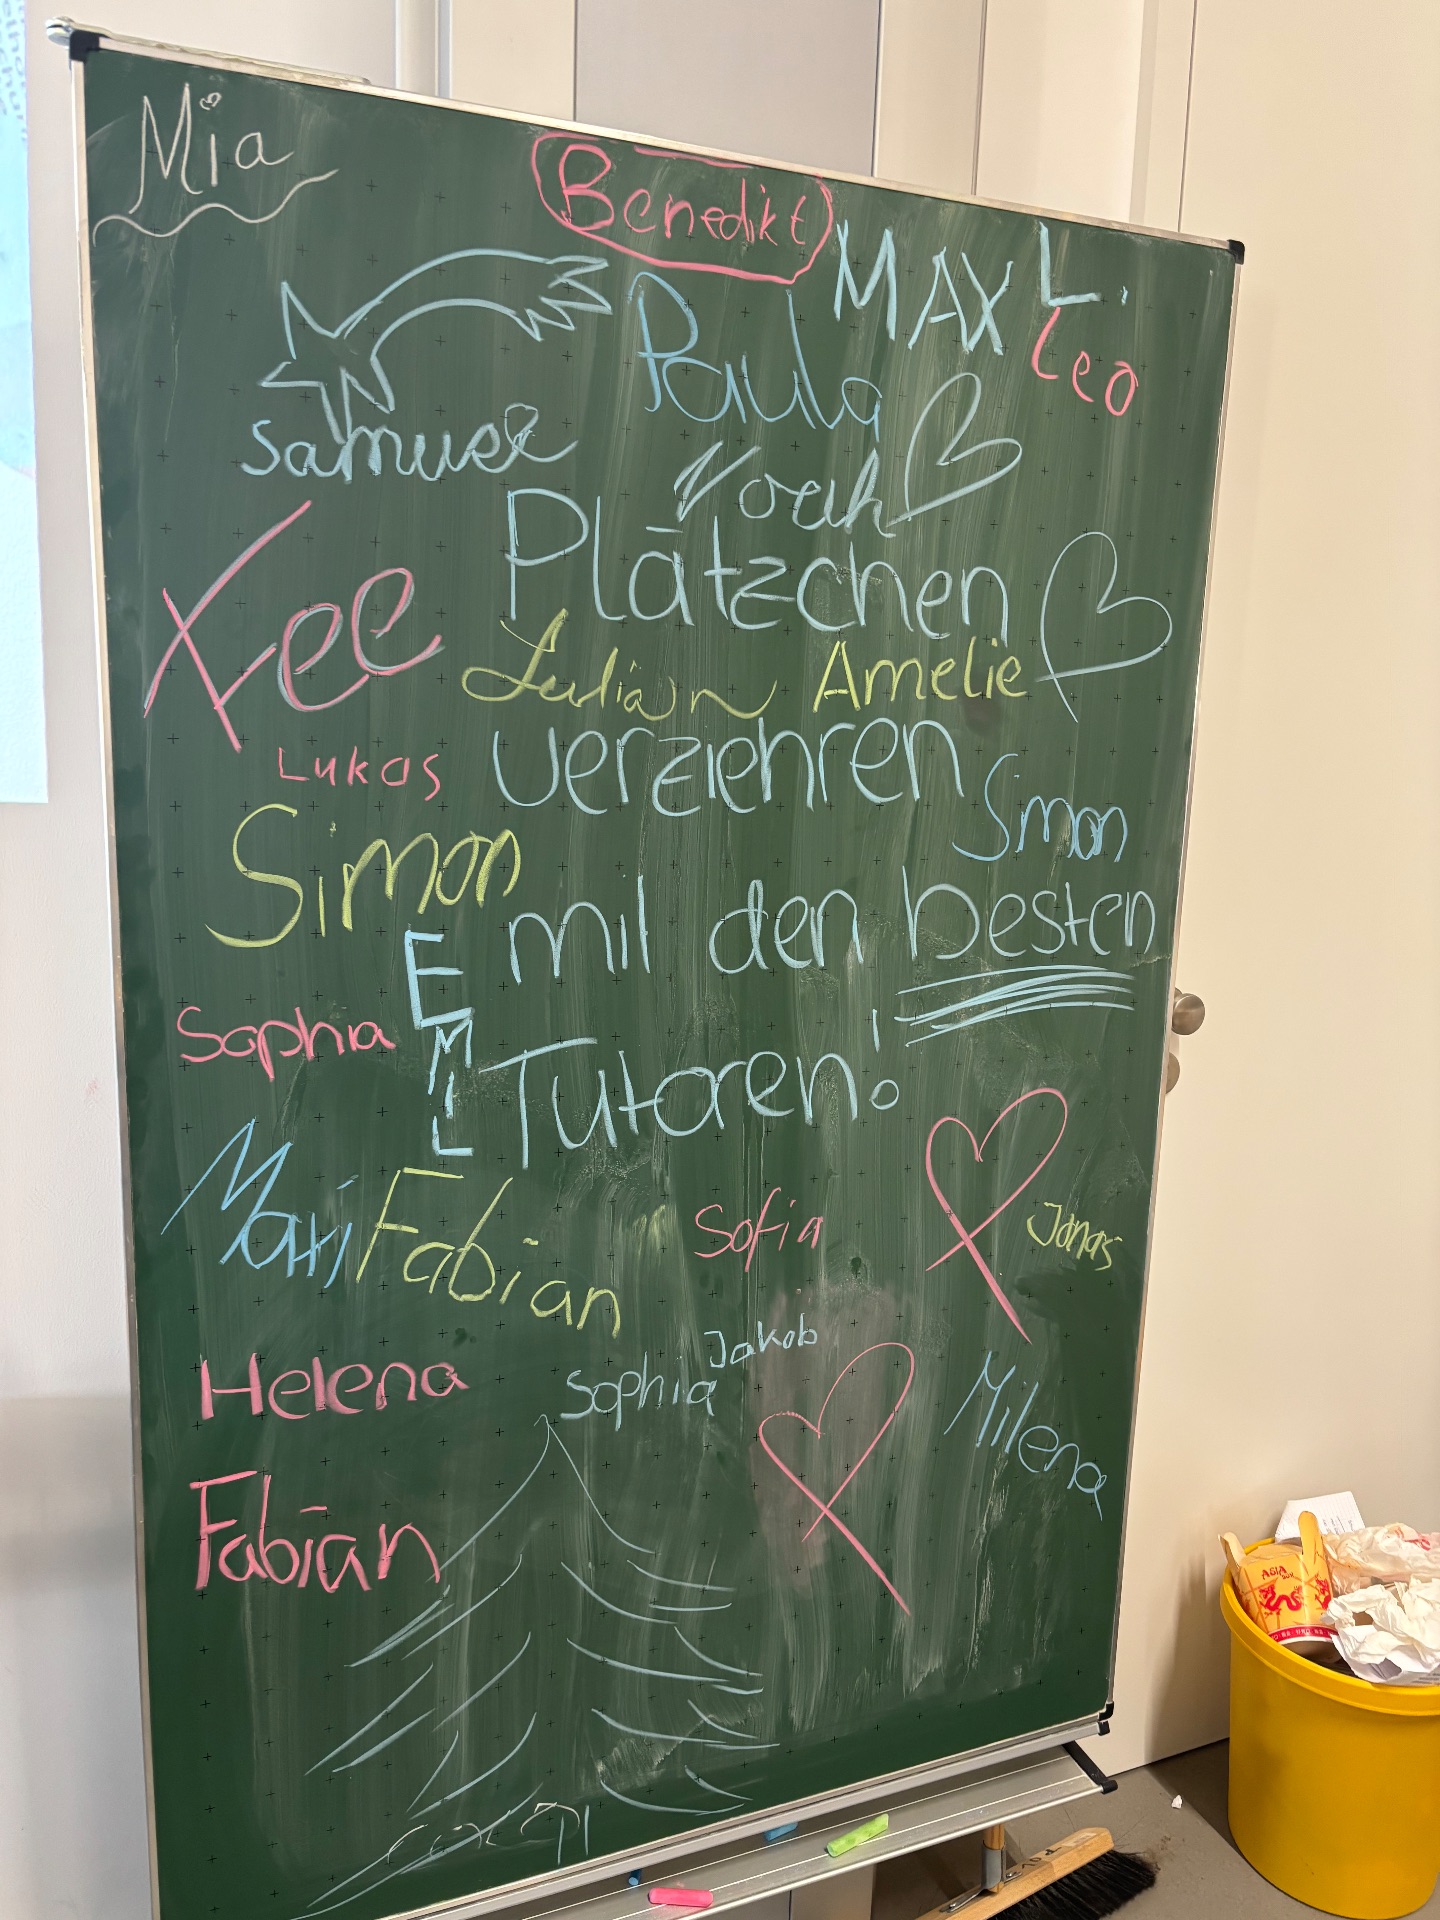 Mia
Benedikt
MAX L.
Leo
Paula
Samuel
Noah
Plätzchen
Fee
Julian Amelie
verziehren
Lukas
Simon
Simon
mit den besten
EMIL
Sophia
Tutoren!
Maxi
Fabian
Sofia
Jonas
Jakob
Helena
Sophia
Milena
Fabian
ASIA